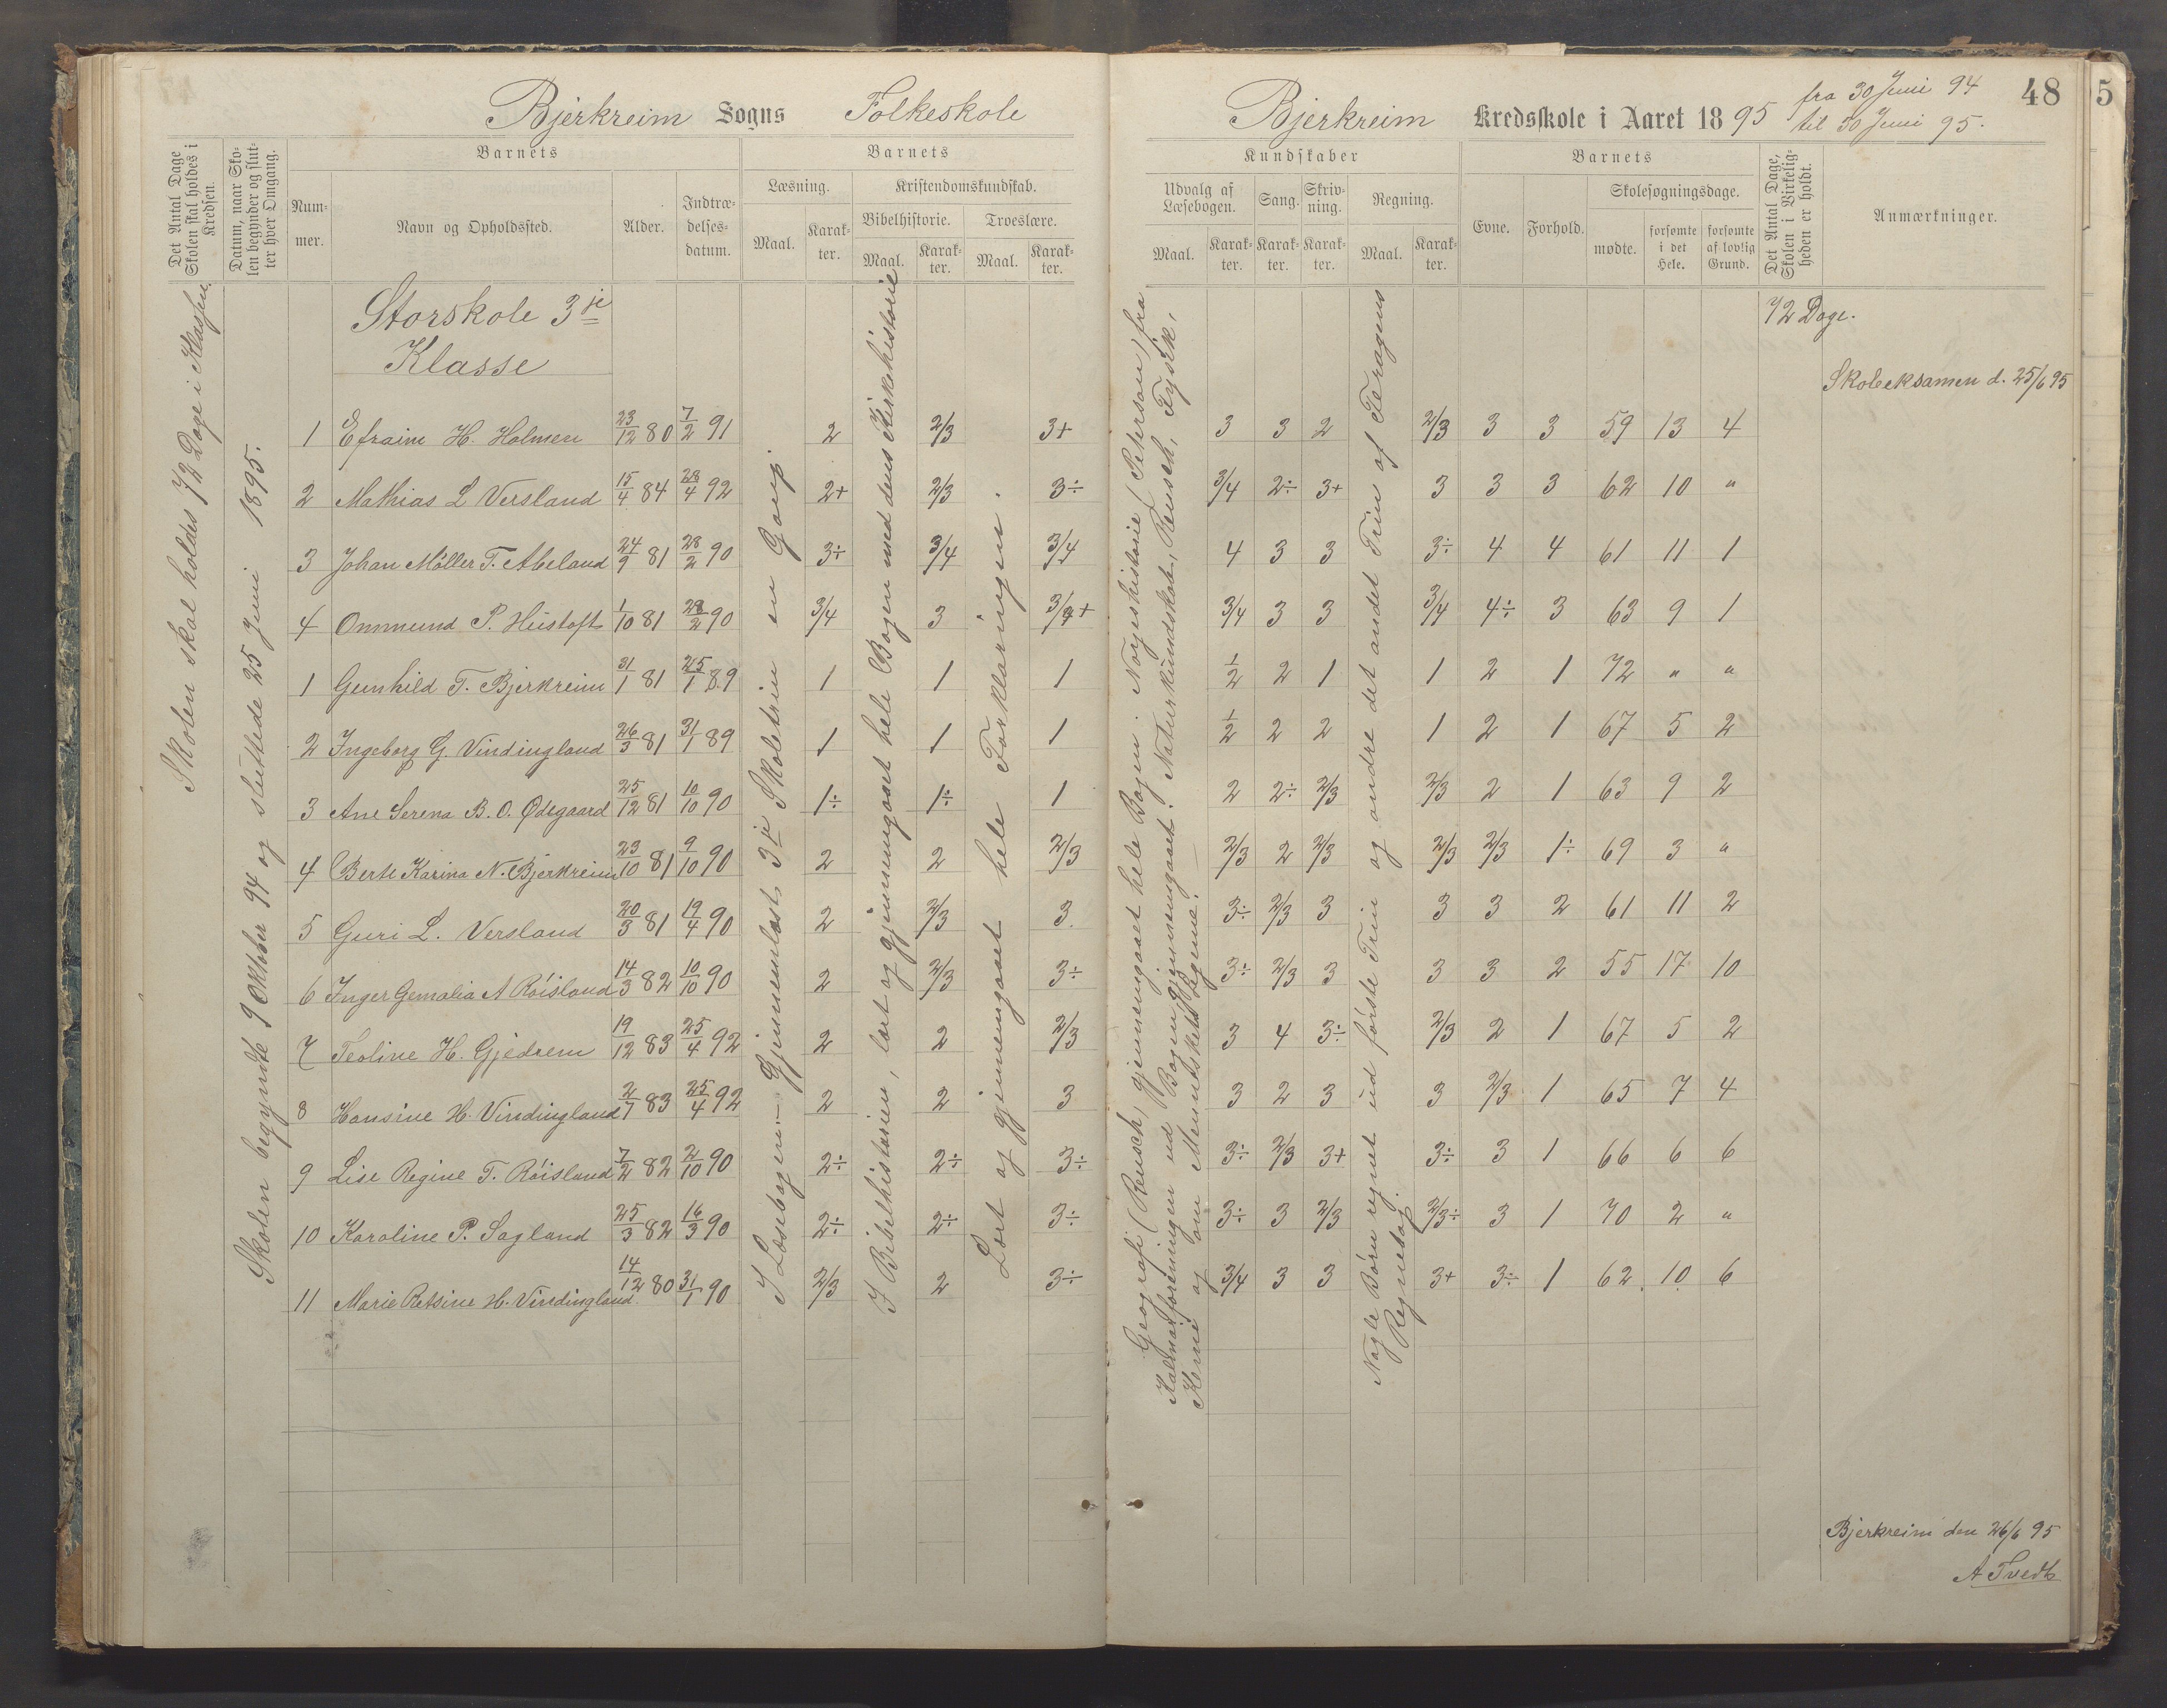 Bjerkreim Sogns Folkeskole
Bjerkreim Kredsskole i Aaret 1895 fra 30 Juni 94
til 30 Juni 95.
48
5
Det Antal Dage
Skolen skal holdes i
Kredsen.
Datum, naar Sko-
len begynder og slut-
ter hver Omgang.
Barnets
Num-
mer.
Navn og Opholdssted.
Alder.
Indtræ-
delses-
datum.
Barnets
Læsning.
Maal.
Karak-
ter.
Kristendomskundskab.
Bibelhistorie.
Maal.
Karak-
ter.
Troeslære.
Maal.
Karak-
ter.
Kundskaber
Udvalg af
Læsebogen.
Maal.
Karak-
ter.
Sang.
Karak-
ter.
Skriv-
ning.
Karak-
ter.
Regning.
Maal.
Karak-
ter.
Barnets
Evne.
Forhold.
Skolesøgningsdage.
mødte.
forsømte
i det
Hele.
forsømte
af lovlig
Grund.
Det Antal Dage,
Skolen i Virkelig-
heden er holdt.
Anmærkninger.
Skolen skal holdes 72 Dage i Klassen
Skolen begyndte 9 Oktober 94 og sluttede 25 Juni 1895.
Storskole 3je
Klasse
72 Dage.
Skoleeksamen d. 25/6 95
I Læsebogen:- Gjennemlæst 3je Skoletrin en Gang
I Bibelhistorien, læst og gjennemgaaet hele Bogen med dens Kirkehistorie
Læst og gjennemgaaet hele Forklaringen.
Geografi (Reusch) gjennemgaaet hele Bogen. Norgeshistorie (Peterson) fra
Kalmarforeningen ud Bogen gjennemgaaet. Naturkundskab, Reusch, Fysik,
Kemi og om Menneskets Legeme.
Nogle Børn regnet ud første Trin og andre det andet Trin af Feragens
Regnebog.
1 Efraim H. Holmen 23/12 80 7/2 91 2 2/3 3+ 3 3 2 2/3 3 3 59 13 4
2 Mathias L Versland 15/4 84 28/4 92 2+ 2/3 3÷ 3/4 2÷ 3+ 3 3 3 62 10 "
3 Johan Møller T. Abeland 24/9 81 28/2 90 3÷ 3/4 3/4 4 3 3 3÷ 4 4 61 11 1
4 Ommund P. Hustoft 1/10 81 28/2 90 3/4 3 3/4+ 3/4 3 3 3/4 4÷ 3 63 9 1
1 Gunhild T. Bjerkreim 31/1 81 25/1 89 1 1 1 1/2 2 1 1 2 1 72 " "
2 Ingeborg G. Vindingland 26/3 81 31/1 89 1 1 1 1/2 2 2 1 2 1 67 5 2
3 Ane Serena B. O. Ødegaard 25/12 81 10/10 90 1÷ 1÷ 1 2 2÷ 2/3 2/3 2 1 63 9 2
4 Berte Karina N. Bjerkreim 23/10 81 9/10 90 2 2 2/3 2/3 2 2/3 2/3 2/3 1÷ 69 3 "
5 Guri L. Versland 20/3 81 19/4 90 2 2/3 3 3÷ 2/3 3 3 3 2 61 11 2
6 Inger Gemalia A Røisland 14/3 82 10/10 90 2 2/3 3÷ 3÷ 2/3 3 3 3 2 55 17 10
7 Teoline H. Gjedrem 19/12 83 25/4 92 2 2 2/3 3 4 3÷ 2/3 2 1 67 5 2
8 Hansine H. Vindingland 2/7 83 25/4 92 2 2 3 3 2 3 3 2/3 1 65 7 4
9 Lise Regine T. Røisland 7/2 82 2/10 90 2÷ 2÷ 3÷ 3÷ 2/3 3+ 3÷ 3 1 66 6 6
10 Karoline P. Sagland 25/3 82 16/3 90 2÷ 2÷ 3÷ 3÷ 3 2/3 2/3÷ 3 1 70 2 "
11 Marie Retsine H. Vindingland 14/12 80 31/1 90 2/3 2 3÷ 3/4 3 3 3+ 3÷ 1 62 10 6
Bjerkreim den 26/6 95
A Tvedt